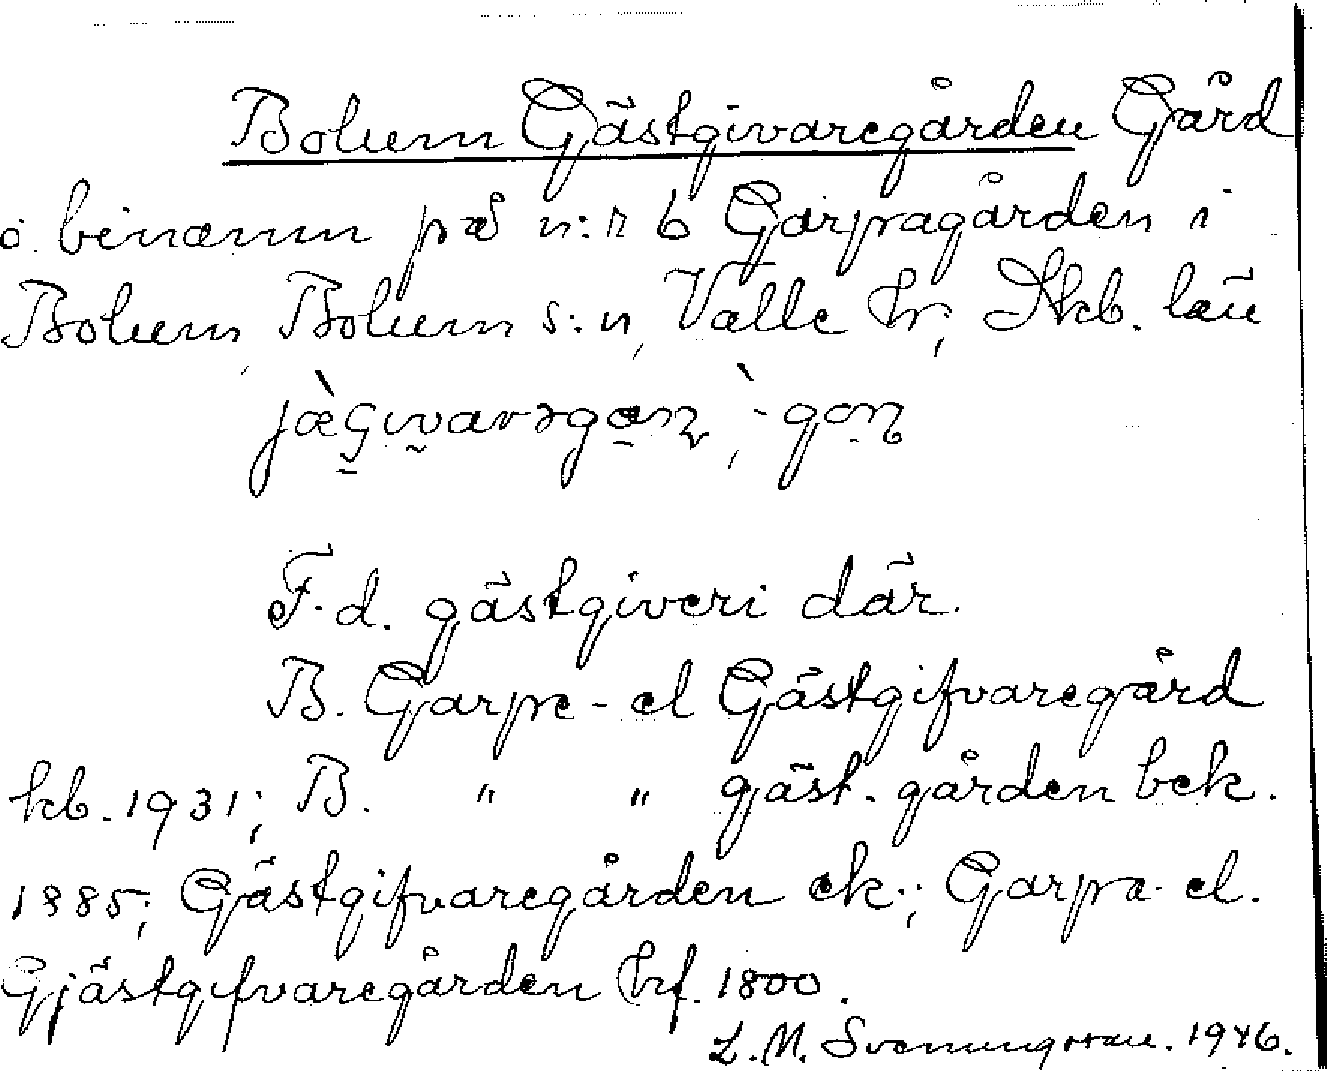 Bolum Gästgivaregården Gård
o. binamn på n:r 6 Garpagården i
Bolum, Bolum s:n, Valle hr, Skb. län
F. d. gästgiveri där.
B. Garpe- el Gästgifvaregård
kb. 1931; B. " " gjäst. gården bek.
1885; Gästgifvaregården ek.; Garpa- el.
Gjästgifvaregården hrf. 1800.
L. M. Svenungsson. 1946.